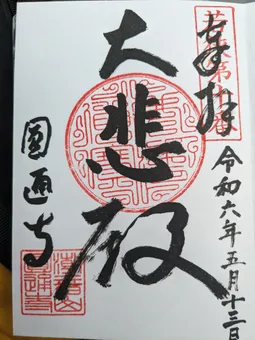 奉拝
令和六年五月十三日
大悲殿
圓通寺